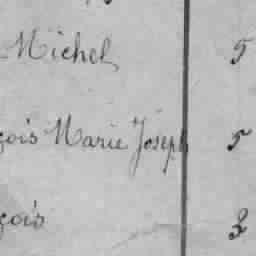 Michel 5
çois Marie Joseph 5
çois 3